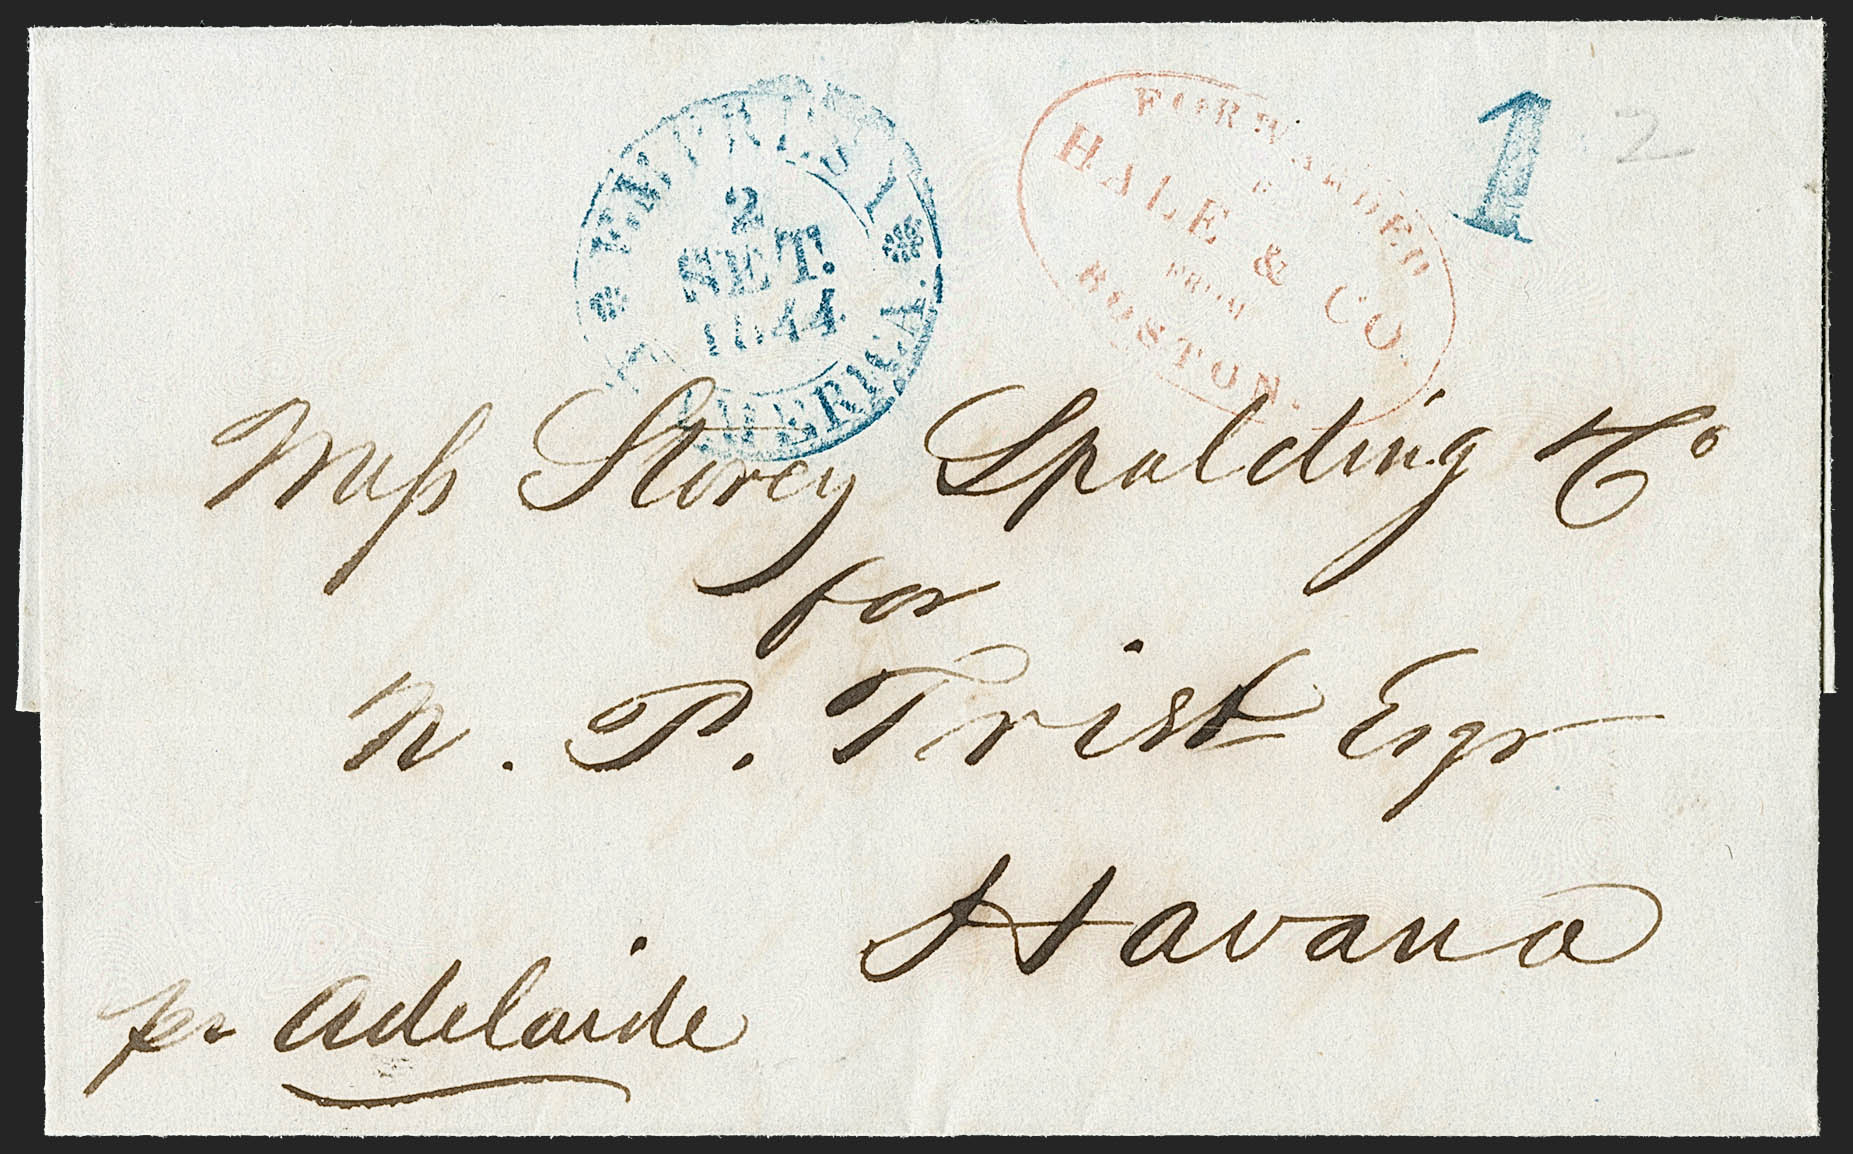 2
SET.
1844.
AMERICA.
FORWARDED
HALE & CO.
FROM
BOSTON.
1
2
Mess Storey Spalding & Co
for
N. P. Trist Esqr
Havana
pr Adelaide